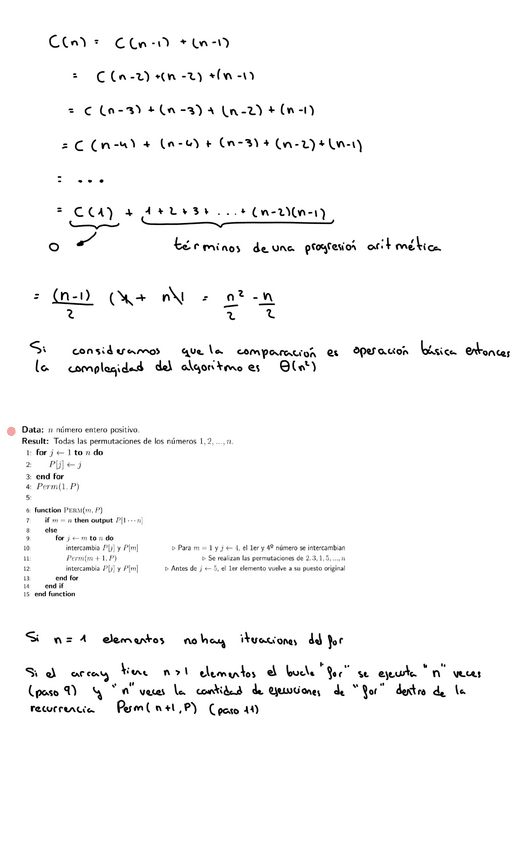 C(n) = C(n-1) + (n-1)
= C(n-2) + (n-2) + (n-1)
= C(n-3) + (n-3) + (n-2) + (n-1)
= C(n-4) + (n-4) + (n-3) + (n-2) + (n-1)
= ...
= C(1) + 1+2+3+ ... + (n-2)(n-1)
0 términos de una progresión aritmética
= (n-1)/2 (1 + n-1) = n²/2 - n/2
Si consideramos que la comparación es operación básica entonces
la complegidad del algoritmo es Θ(n²)
Data: n número entero positivo.
Result: Todas las permutaciones de los números 1, 2, ..., n.
1: for j ← 1 to n do
2: P[j] ← j
3: end for
4: Perm(1, P)
5:
6: function PERM(m, P)
7: if m = n then output P[1 ··· n]
8: else
9: for j ← m to n do
10: intercambia P[j] y P[m] ▷ Para m = 1 y j ← 4, el 1er y 4º número se intercambian
11: Perm(m + 1, P) ▷ Se realizan las permutaciones de 2, 3, 1, 5, ..., n
12: intercambia P[j] y P[m] ▷ Antes de j ← 5, el 1er elemento vuelve a su puesto original
13: end for
14: end if
15: end function
Si n = 1 elementos no hay ituaciones del for
Si el array tiene n>1 elementos el bucle "for" se ejecuta "n" veces
(paso 9) y "n" veces la cantidad de ejecuciones de "for" dentro de la
recurrencia Perm(n+1, P) (paso 11)